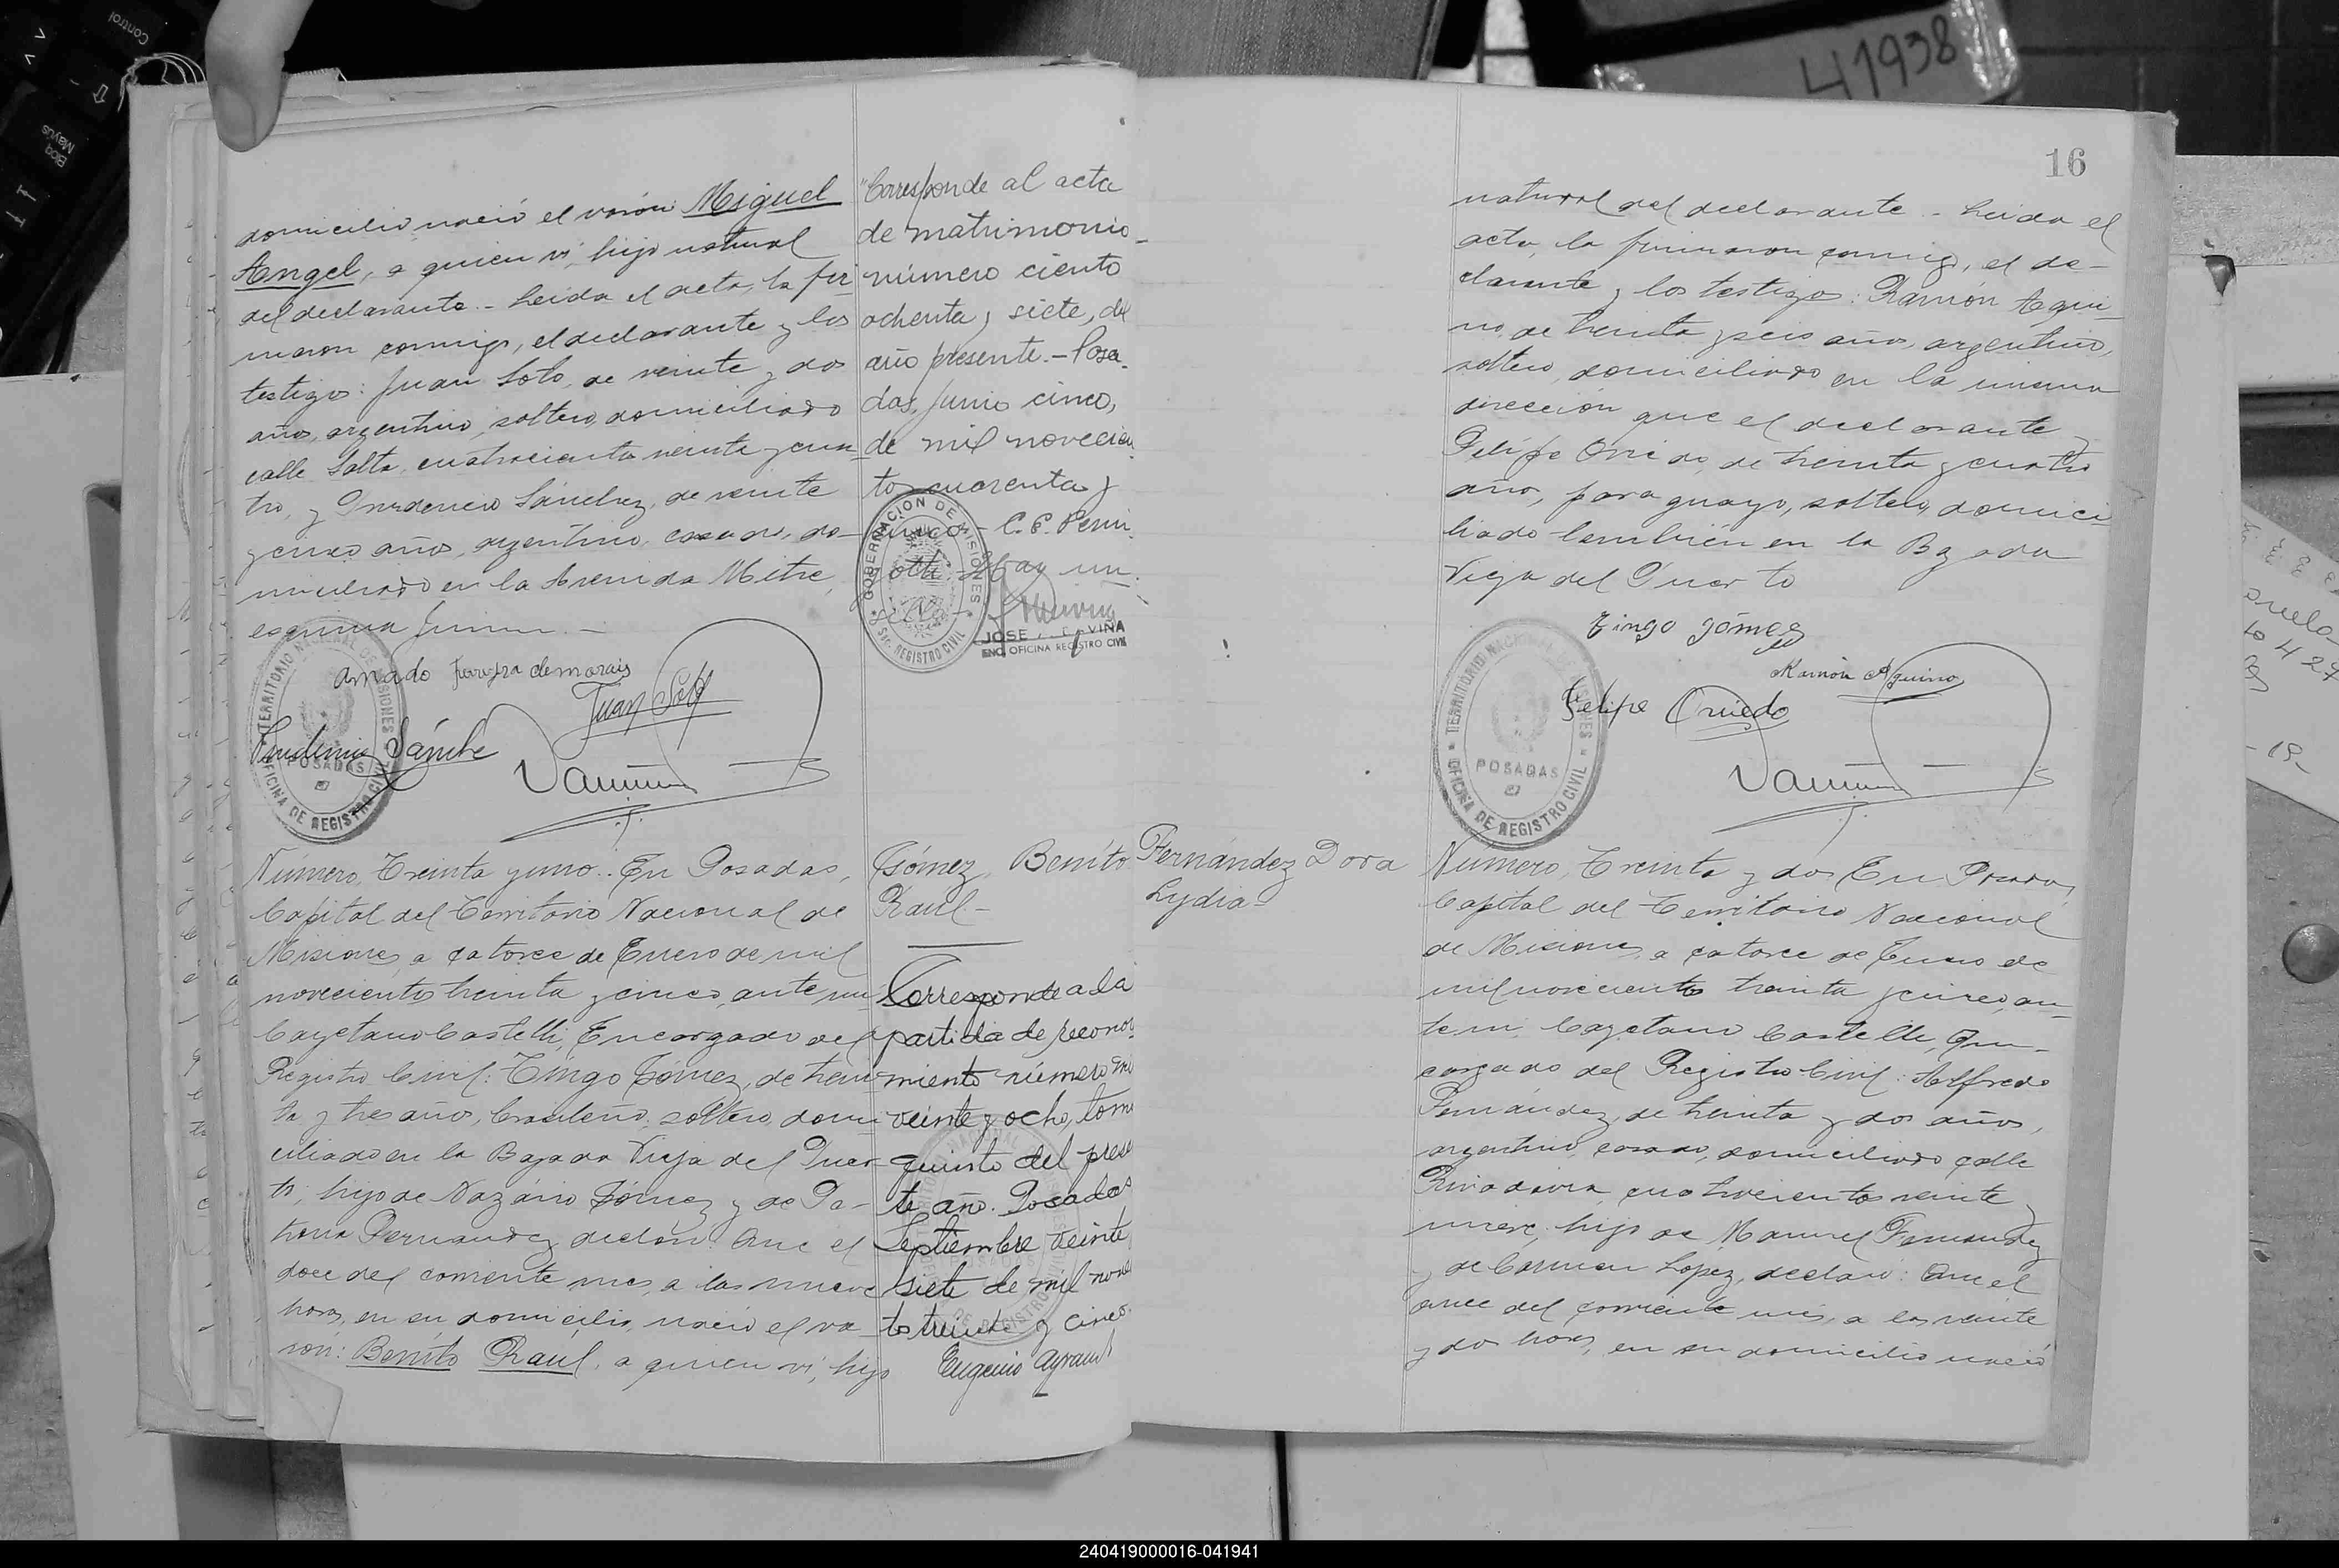 domicilio nació el varón Miguel
Angel, a quien ví, hijo natural
del declarante.- Leida el acta, la fir-
maron conmigo, el declarante y los
testigos: Juan Soto, de veinte y dos
años, argentino, soltero, domiciliado
calle Salta, cuatrocientos veinte y cua-
tro, y Prudencio Sánchez, de veinte
y cinco años, argentino, casado, do-
miciliado en la Avenida Mitre,
esquina Junin.-
Amado Ferreyra demorais
Juan Soto
Prudencio Sánche
TERRITORIO NACIONAL DE MISIONES
POSADAS
OFICINA DE REGISTRO CIVIL
"Corresponde al acta
de matrimonio
número ciento
ochenta y siete, del
año presente.- Posa-
das, Junio cinco,
de mil novecien
tos cuarenta y
cinco - C. E. Peni
otti Hay un
sello
GOBERNACION DE MISIONES
Sec. REGISTRO CIVIL
JOSE VIÑA
ENC. OFICINA REGISTRO CIVIL
Número Treinta y uno.- En Posadas,
Capital del Territorio Nacional de
Misiones, a catorce de Enero de mil
novecientos treinta y cinco, ante mi
Cayetano Castelli, Encargado del
Registro Civil: Tingo Gómez, de trein-
ta y tres años, brasileño, soltero, domi-
ciliado en la Bajada Vieja del Puer-
to, hijo de Nazário Gómez y de Pe-
trona Fernandez, declaró: Que el
doce del corriente mes, a las nueve
horas, en su domicilio, nació el va-
rón: Benito Raúl, a quien ví, hijo
Gómez, Benito
Raúl-
Corresponde a la
partida de reconoci
miento número
veinte y ocho, tomo
quinto del presen
te año. Posadas
Septiembre veinte
siete de mil nove
tos treinta y cinco.
Eugenio
16
natural del declarante.- Leida el
acta, la firmaron conmigo, el de-
clarante y los testigos: Ramón Aqui-
no, de treinta y seis años, argentino,
soltero, domiciliado en la misma
dirección que el declarante y
Felipe Oviedo, de treinta y cuatro
años, paraguayo, soltero, domici
liado también en la Bajada
Vieja del Puerto
Tingo gómez
Ramón Aquino
Felipe Oviedo
TERRITORIO NACIONAL DE MISIONES
POSADAS
OFICINA DE REGISTRO CIVIL
Fernández Dora
Lydia-
Número Treinta y dos En Posadas,
Capital del Territorio Nacional
de Misiones, a catorce de Enero de
mil novecientos treinta y cinco, an-
te mi Cayetano Castelli, En-
cargado del Registro Civil: Alfredo
Fernández, de treinta y dos años,
argentino, casado, domiciliado calle
Rivadavia cuatrocientos veinte y
nueve, hijo de Manuel Fernandez
y de Carmen López, declaró: Que el
once del corriente mes, a las veinte
y dos horas, en su domicilio nació
41938
240419000016-041941